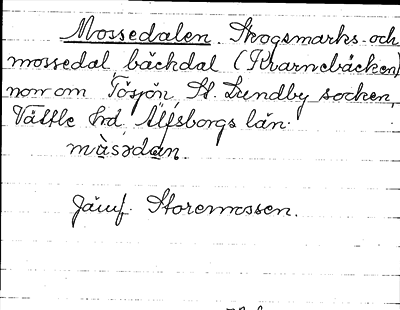 Mossedalen. Skogsmarks- och
mossedal, bäckdal (Kvarnebäcken)
norr om Tösjön, St. Lundby socken,
Vättle hd Älfsborgs län.
màsədan.
Jämf. Storemossen.